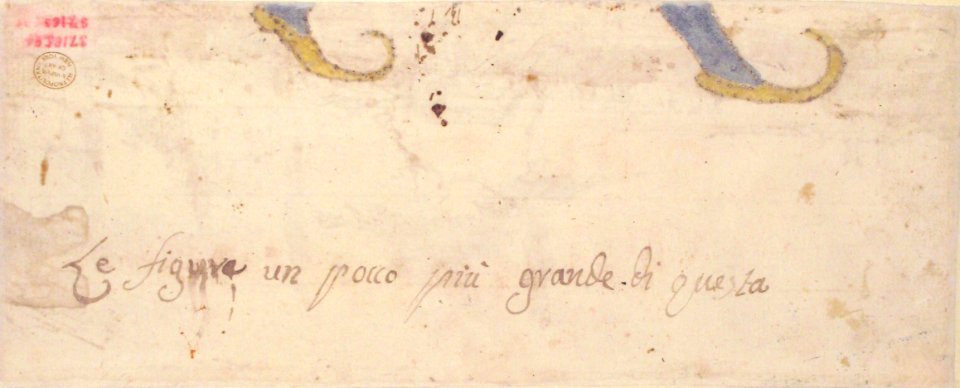 Le figure un pocco più grande di questa